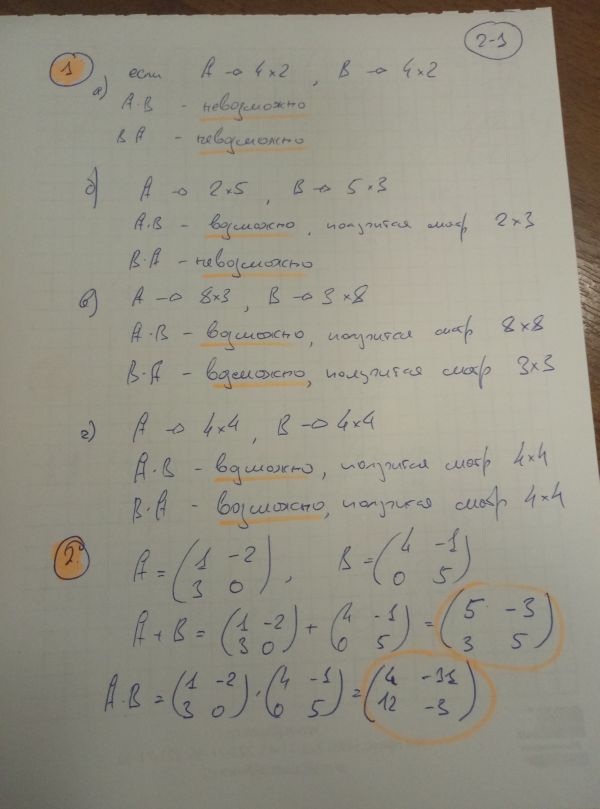 2-1
1 если A → 4×2, B → 4×2
а)
A·B - невозможно
B A - невозможно
б) A → 2×5, B → 5×3
A·B - возможно, получится матр 2×3
B·A - невозможно
в) A → 8×3, B → 3×8
A·B - возможно, получится матр 8×8
B·A - возможно, получится матр 3×3
г) A → 4×4, B → 4×4
A·B - возможно, получится матр 4×4
B·A - возможно, получится матр 4×4
2. A = (1 -2
3 0), B = (4 -1
0 5)
A + B = (1 -2
3 0) + (4 -1
0 5) = (5 -3
3 5)
A·B = (1 -2
3 0) · (4 -1
0 5) = (4 -11
12 -3)